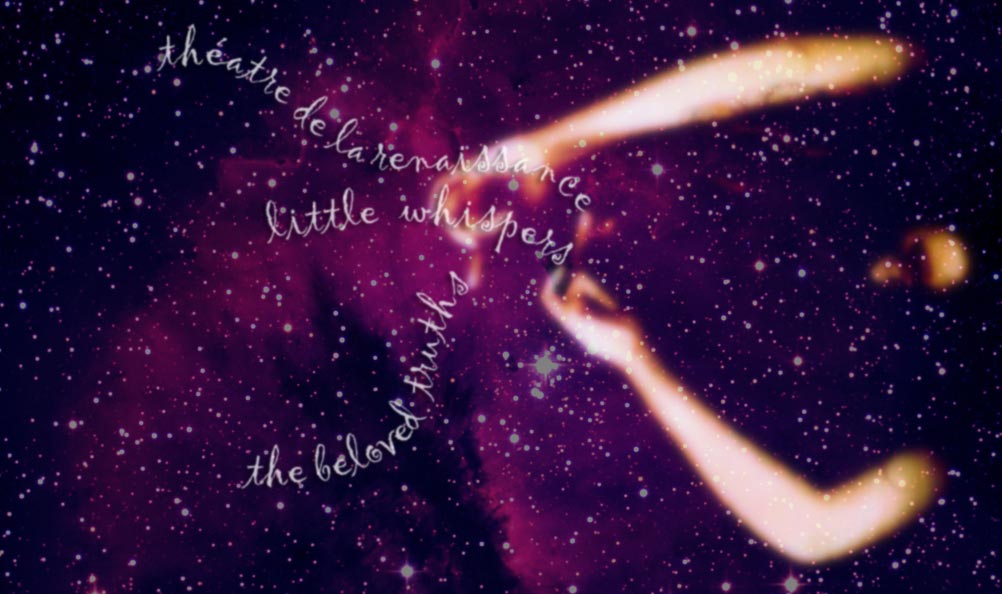 théatre de la renaissance
little whispers
the beloved truths